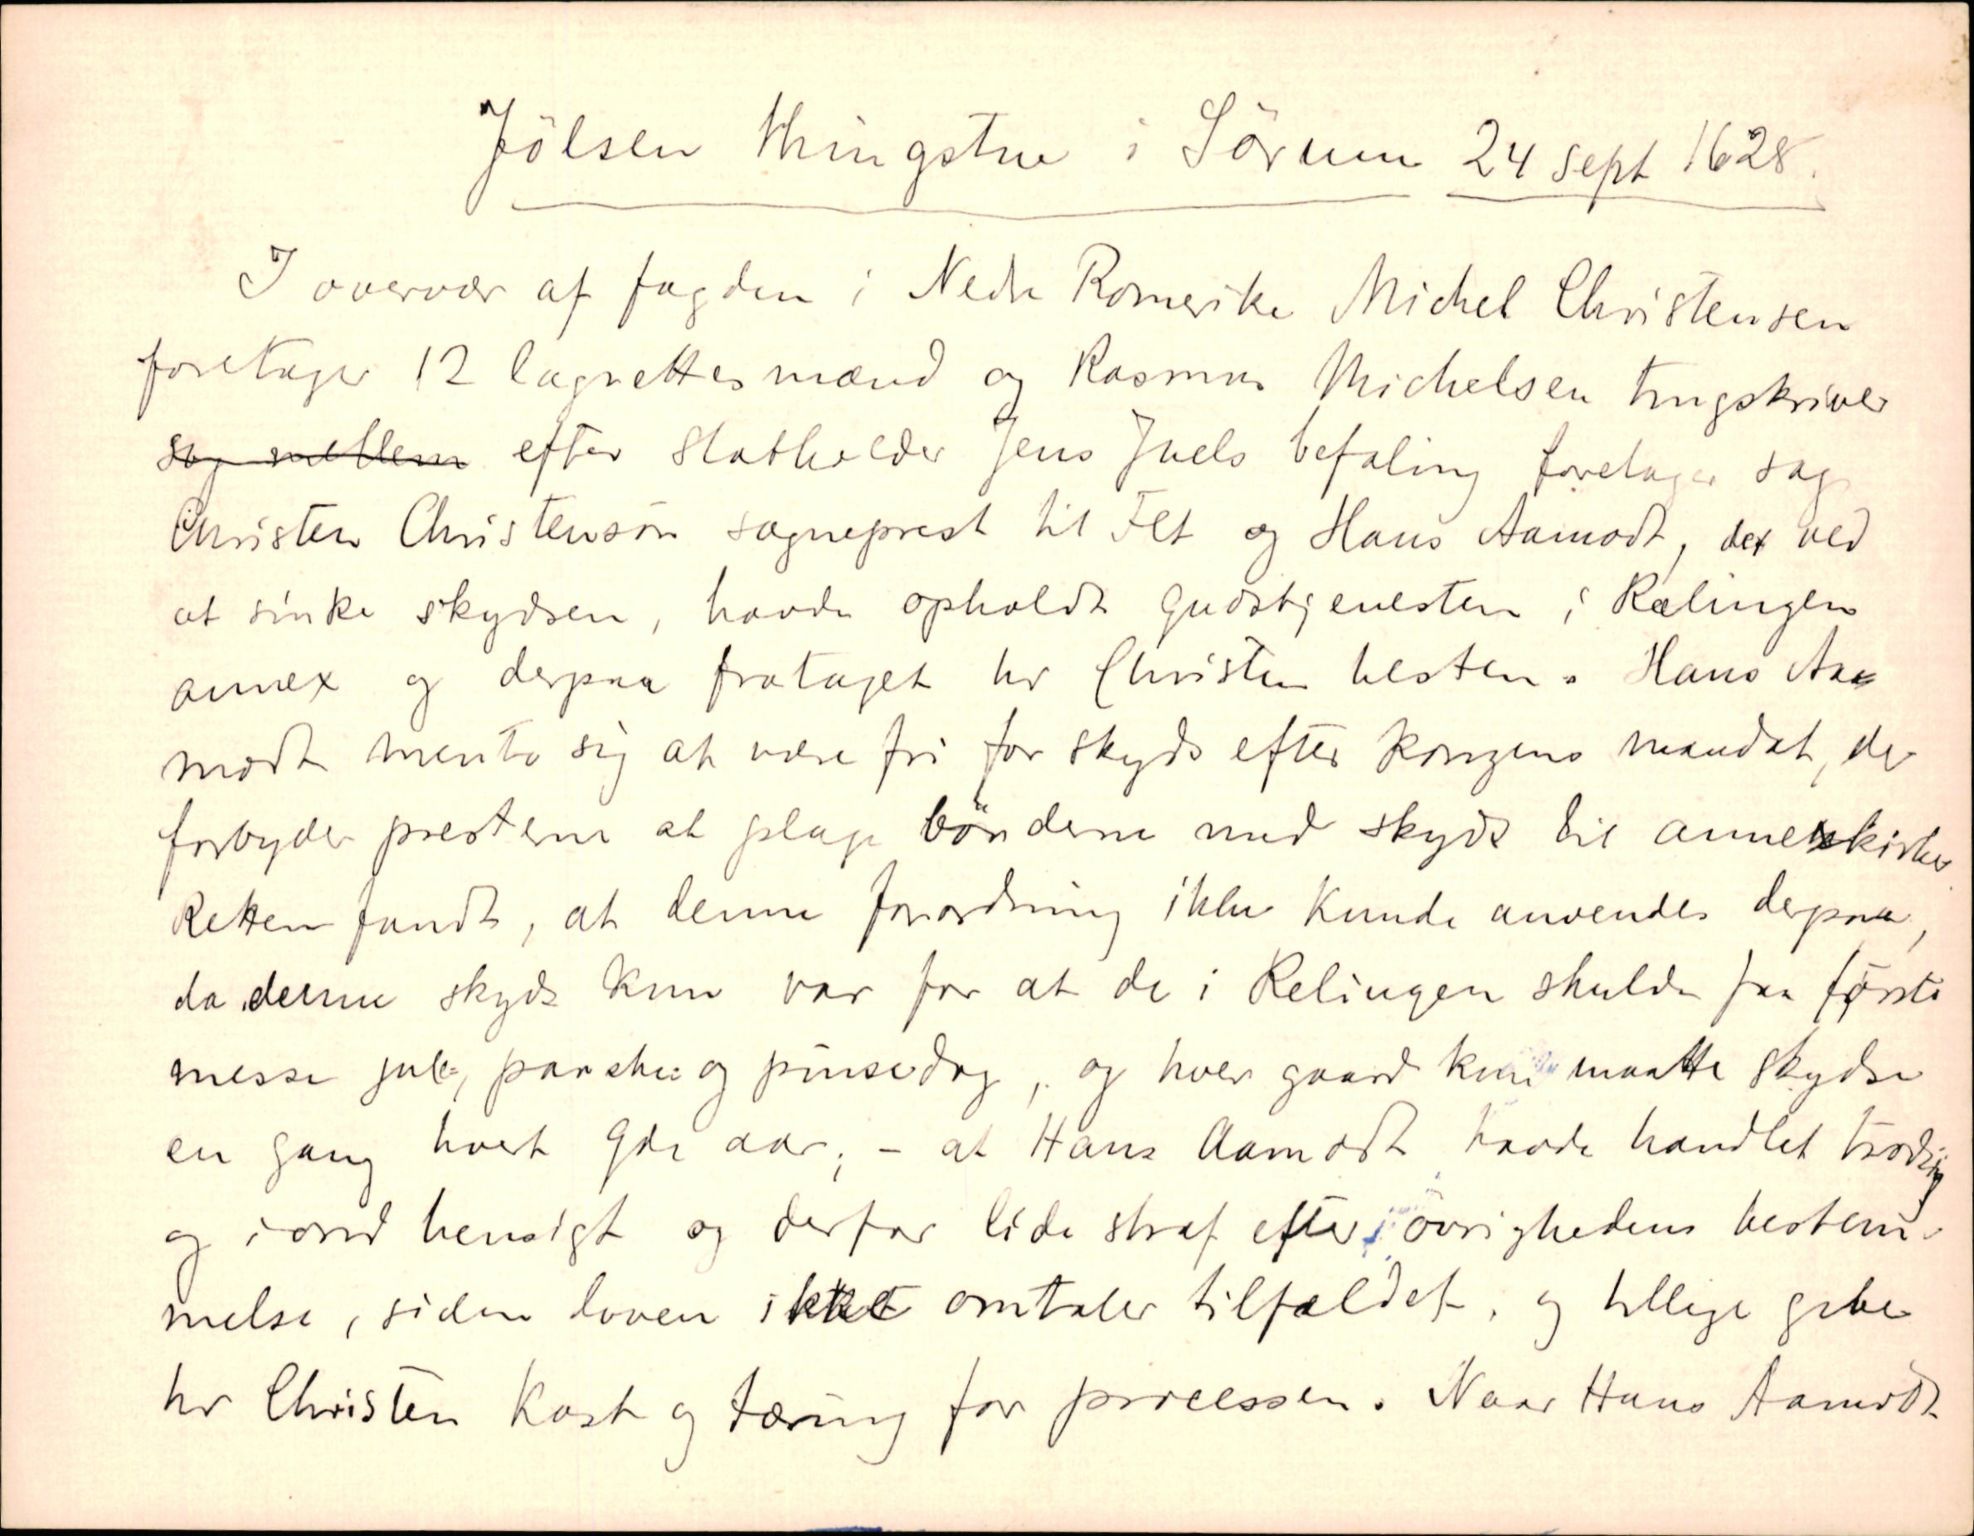 Jölsen thingstue i Sörum 24 sept 1628.
I overvær af fogden i Nedre Romerike Michel Christensen
foretager 12 lagrettesmænd og Rasmus Michelsen tingskriver
sag mellem efter statholder Jens Juels befaling foretager sag
Christen Christensön sogneprest til Fet og Hans Aamodt, der ved
at sinke skydsen, havde opholdt gudstjenesten i Rælingen
annex og derpaa frataget hr Christen hesten. Hans Aa-
modt mente sig at være fri for skyds efter kongens mandat, der
forbyder presterne at plage bönderne med skyds til annexkirker.
Retten fandt, at denne forordning ikke kunde anvendes derpaa,
da denne skyds kun var for at de i Relingen skulde faa förste
messe jule-, paaske- og pinsedag, og hver gaard kun maatte skydse
en gang hvert 9de aar; - at Hans Aamodt havde handlet trodsig
og i ond hensigt og derfor lide straf efter övrighedens bestem-
melse, siden loven ikke omtaler tilfældet, og tillige give
hr Christen kost og tæring for processen. Naar Hans Aamodt